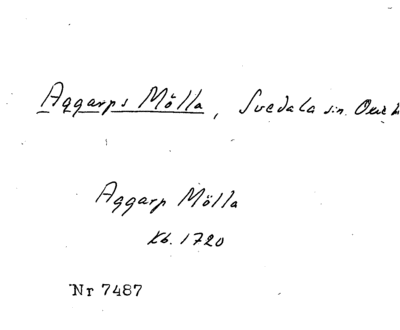 Aggarps Mölla, Svedala sn. Oxie h
Aggarp Mölla
Kb. 1720
Nr 7487